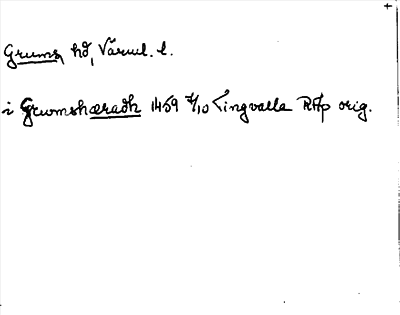 Grums, hd, Värml. l.
i Grwmshæradh 1459 7/10 Tingvalla RAp orig.